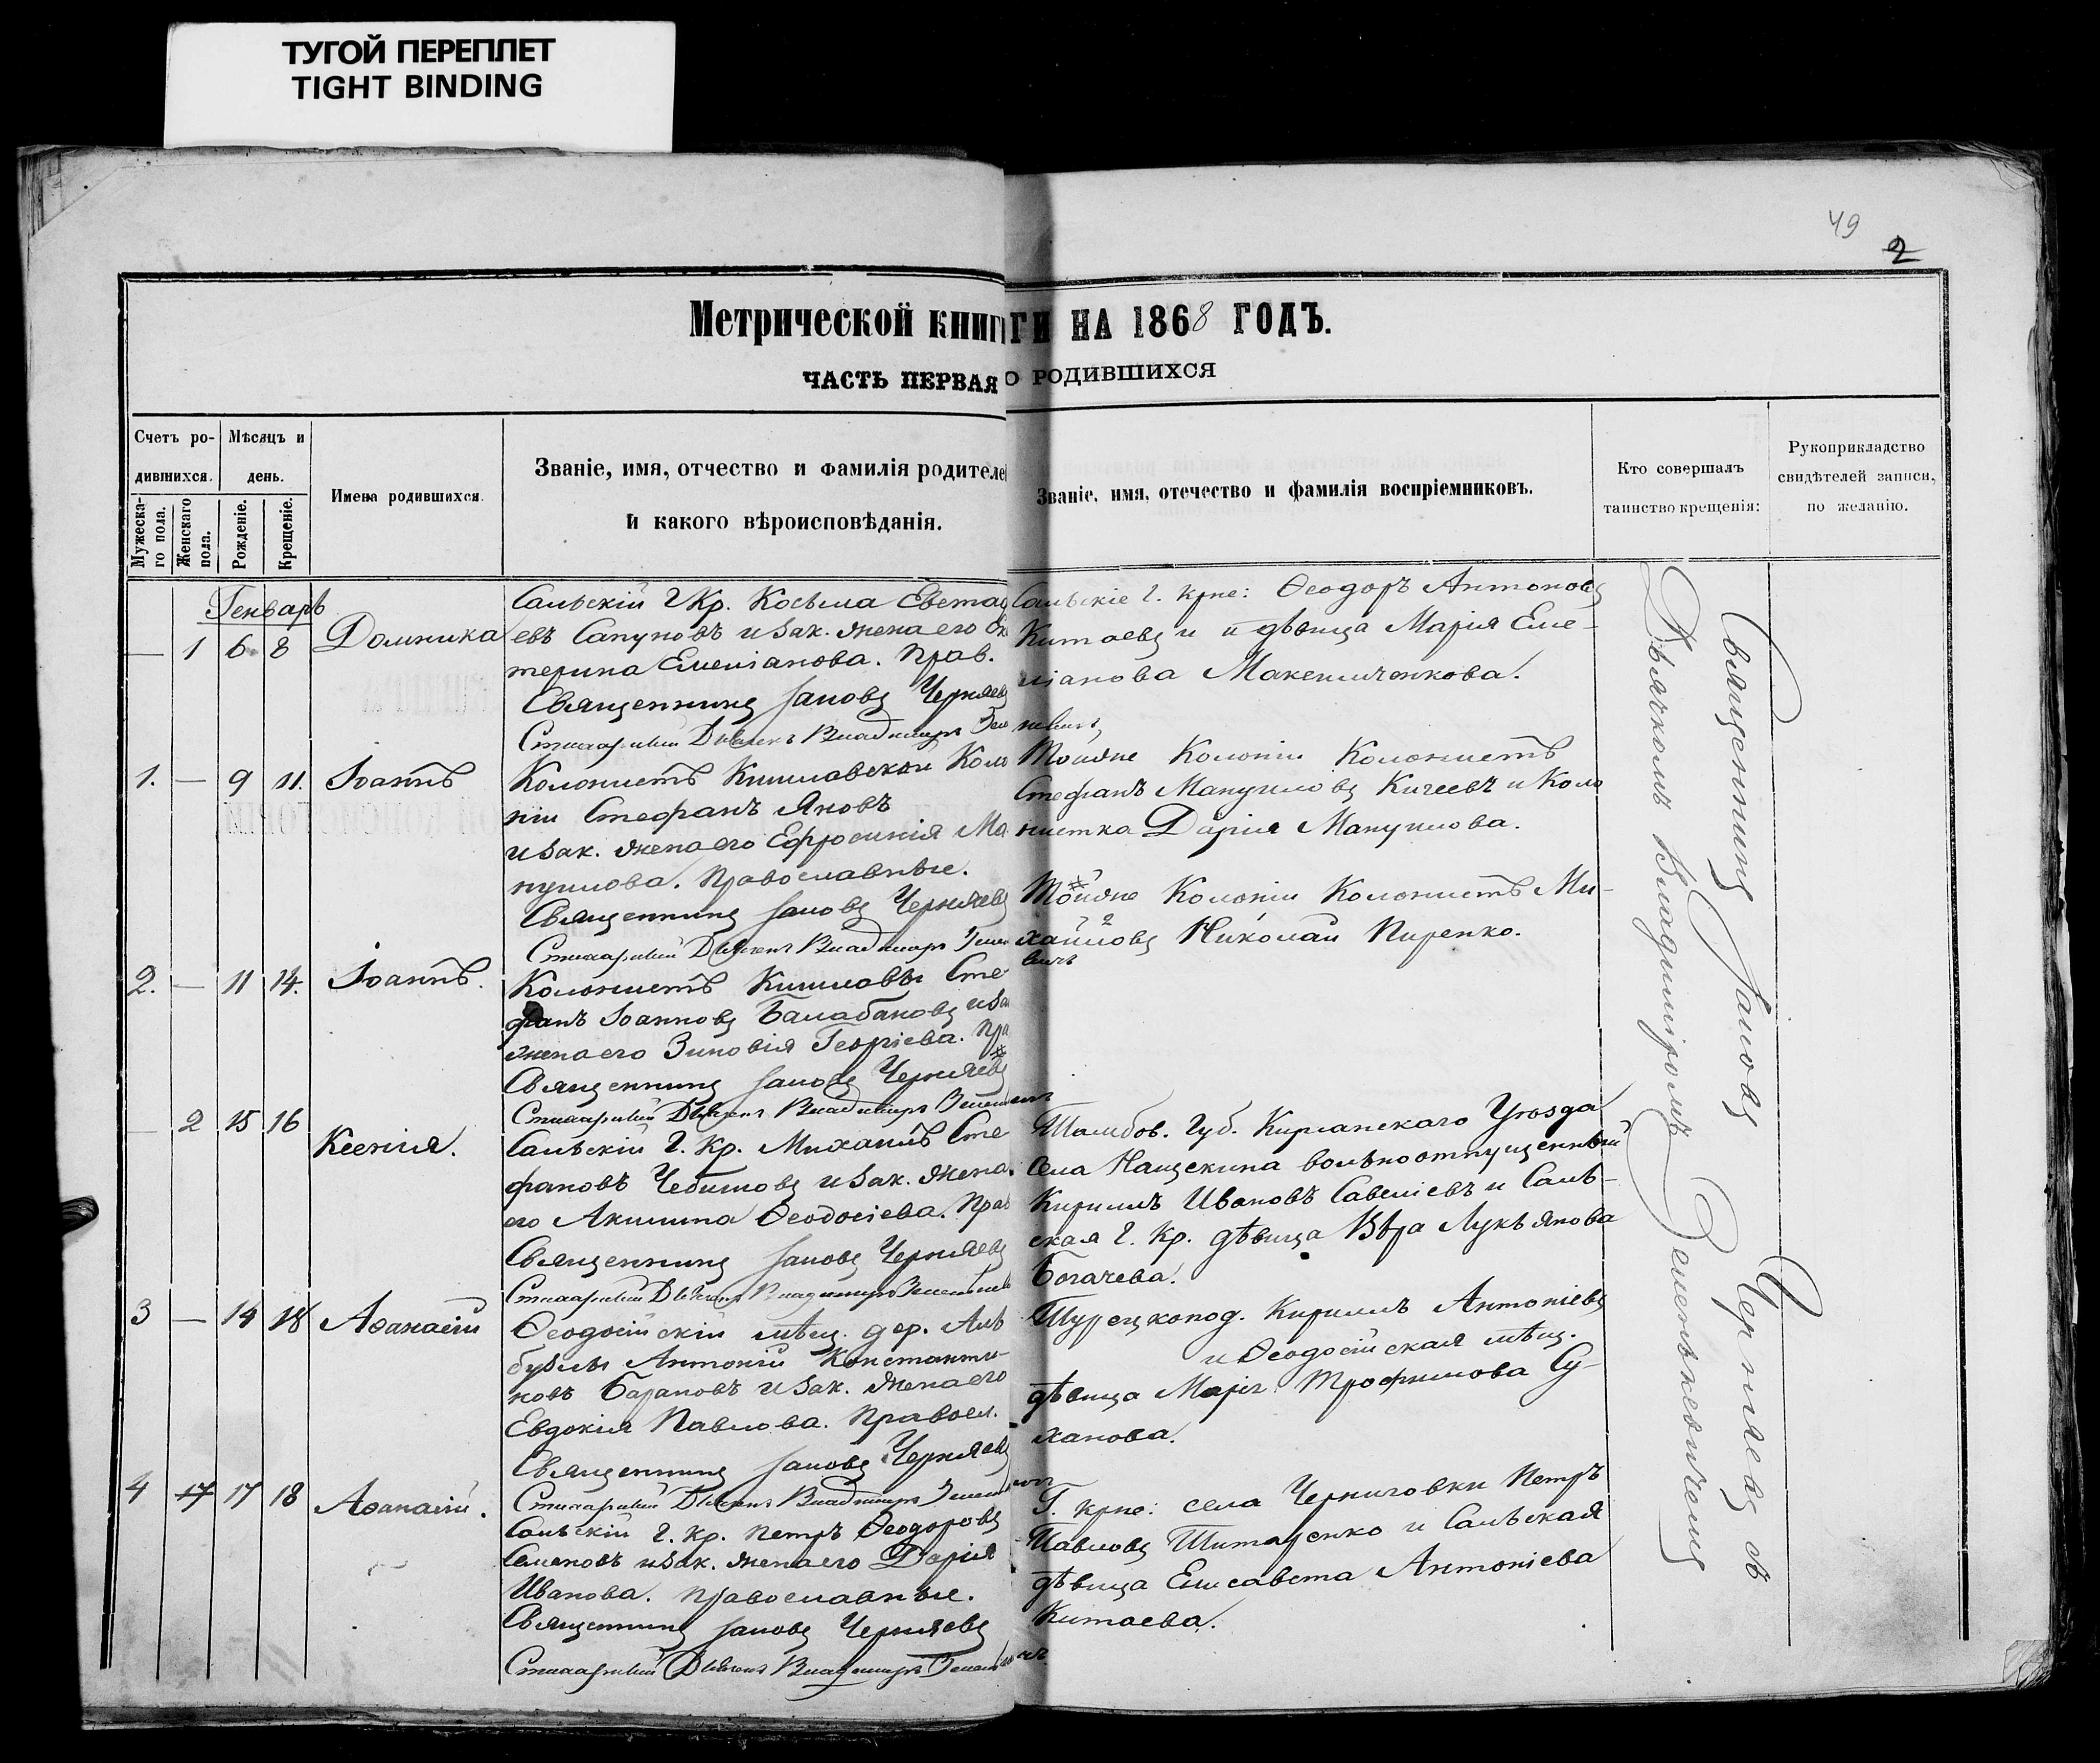 ТУГОЙ ПЕРЕПЛЕТ
TIGHT BINDING
49
2
Метрической книги на 1868 годъ.
ЧАСТЬ ПЕРВАЯ О РОДИВШИХСЯ
Счетъ родившихся.
Мужескаго пола.
Женскаго пола.
Мѣсяцъ и день.
Рожденіе.
Крещеніе.
Имена родившихся.
Званіе, имя, отчество и фамилія родителе
и какого вѣроисповѣданія.
Званіе, имя, отечество и фамилія воспріемниковъ.
Кто совершалъ
таинство крещенія:
Рукоприкладство
свидѣтелей записи,
по желанію.
Генварь
— 1 6 8 Домника
Сальскій Г Кр. Косьма
евъ Сапуновъ и зак. жена его
терина Емеліанова. Прав.
Священникъ Іаковъ Черняевъ
Стихарный Дьячекъ Владимиръ
Сальскіе г. крне: Ѳеодоръ Антоновъ
Китаевъ и дѣвица Марія Еме-
ліанова
1. — 9 11. Іоаннъ
Колонистъ Кишлавской Коло
ніи Стефанъ Яновъ
и зак. жена его Ефросинія Ма
нуилова. Православные.
Священникъ Іаковъ Черняевъ
Стихарный Дьячекъ Владимиръ
Тойже Колоніи Колонистъ
Стефанъ Мануиловъ Кичеевъ и Коло
нистка Дарія Мануилова.
2. — 11 14. Іоаннъ.
Колонистъ Кишлавы Сте
фанъ Іоанновъ Балабановъ и за
жена его Зиновія Георгіева. Пра
Священникъ Іаковъ Черняевъ
Стихарный Дьячекъ Владимиръ
Тойже Колоніи Колонистъ Ми-
хаиловъ Николай Пиренко.
— 2 15 16 Ксенія.
Сальскій Г. Кр. Михаилъ Сте
фановъ и зак. жена
его Акилина Ѳеодосіева. Прав
Священникъ Іаковъ Черняевъ
Стихарный Дьячекъ Владимиръ
Тамбов. Губ. Кирсанскаго Уѣзда
Села Нащекина вольноотпущенный
Кириллъ Ивановъ Савеліевъ и Саль-
ская Г. Кр. дѣвица Вѣра Лукьянова
Богачева.
3 — 14 18 Аѳанасій
Ѳеодосійскій мѣщ. дер. Аль
Антоній Константи-
новъ Барановъ и зак. жена его
Евдокія Павлова. Правосл.
Священникъ Іаковъ Черняевъ
Стихарный Дьячекъ Владимиръ
Турецкопод. Кириллъ Антоніевъ
и Ѳеодосійская мѣщ.
дѣвица Марія Трофимова Су-
ханова.
4 17 17 18 Аѳанасій.
Сальскій Г. Кр. Петръ Ѳеодоровъ
Семеновъ и зак. жена его Дарія
Иванова. Православные.
Священникъ Іаковъ Черняевъ
Стихарный Дьячекъ Владимиръ
Г. крне: села Черниговки Петръ
Павловъ и Сальская
дѣвица Елисавета Антоніева
Китаева.
Священникъ Іаковъ Черняевъ съ
Дьячкомъ Владимиромъ